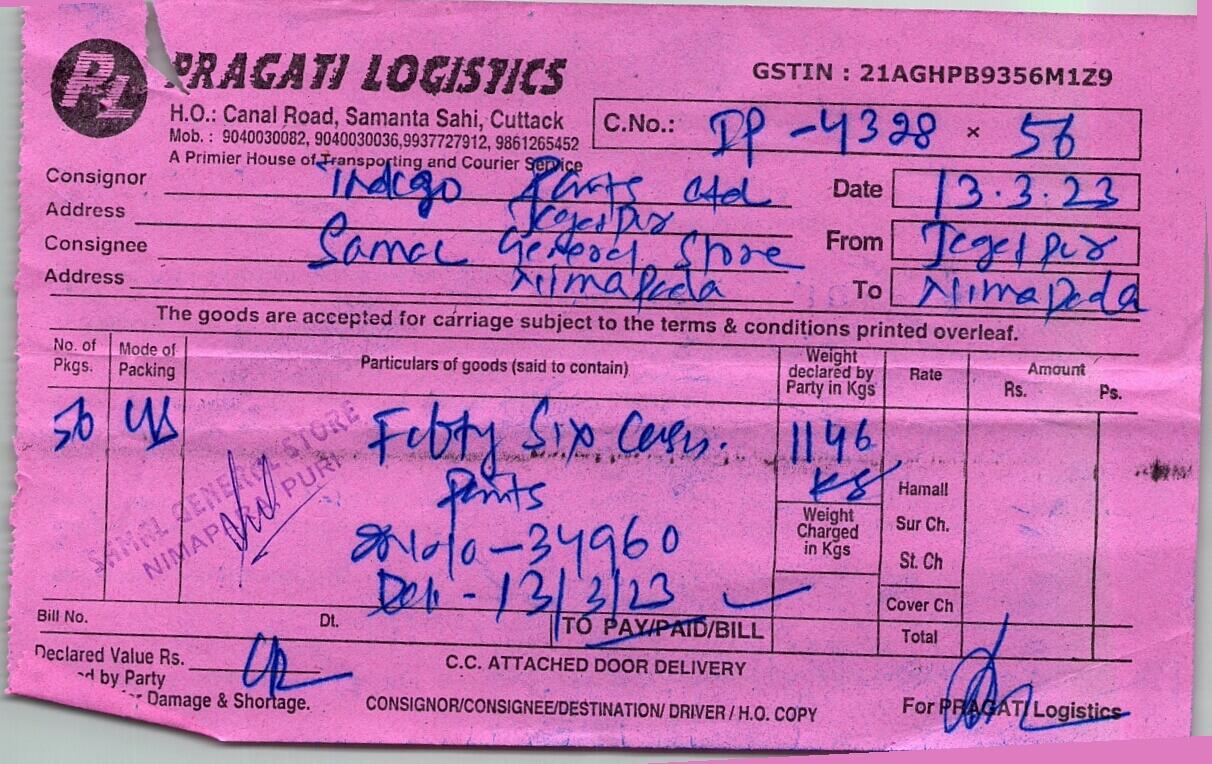 PL PRAGATI LOGISTICS
GSTIN : 21AGHPB9356M1Z9
H.O.: Canal Road, Samanta Sahi, Cuttack
Mob. : 9040030082, 9040030036,9937727912, 9861265452
A Primier House of Transporting and Courier Service
C.No.: DP - 4328 × 56
Consignor Indego Paints Ltd
Date 13.3.23
Address Jagatpur
Consignee General Store
From Jagatpur
Address Nimapada
To Nimapada
The goods are accepted for carriage subject to the terms & conditions printed overleaf.
No. of Pkgs. Mode of Packing Particulars of goods (said to contain) Weight declared by Party in Kgs Rate Amount Rs. Ps.
56 Six 1146
Paints KS Hamali
SAMAL GENERAL STORE
NIMAPARA, PURI
Weight Charged in Kgs
Sur Ch.
34960
St. Ch
13/3/23
Cover Ch
Bill No. Dt. TO PAY/PAID/BILL Total
Declared Value Rs.
d by Party
C.C. ATTACHED DOOR DELIVERY
Damage & Shortage.
CONSIGNOR/CONSIGNEE/DESTINATION/ DRIVER / H.O. COPY
For PRAGATI Logistics